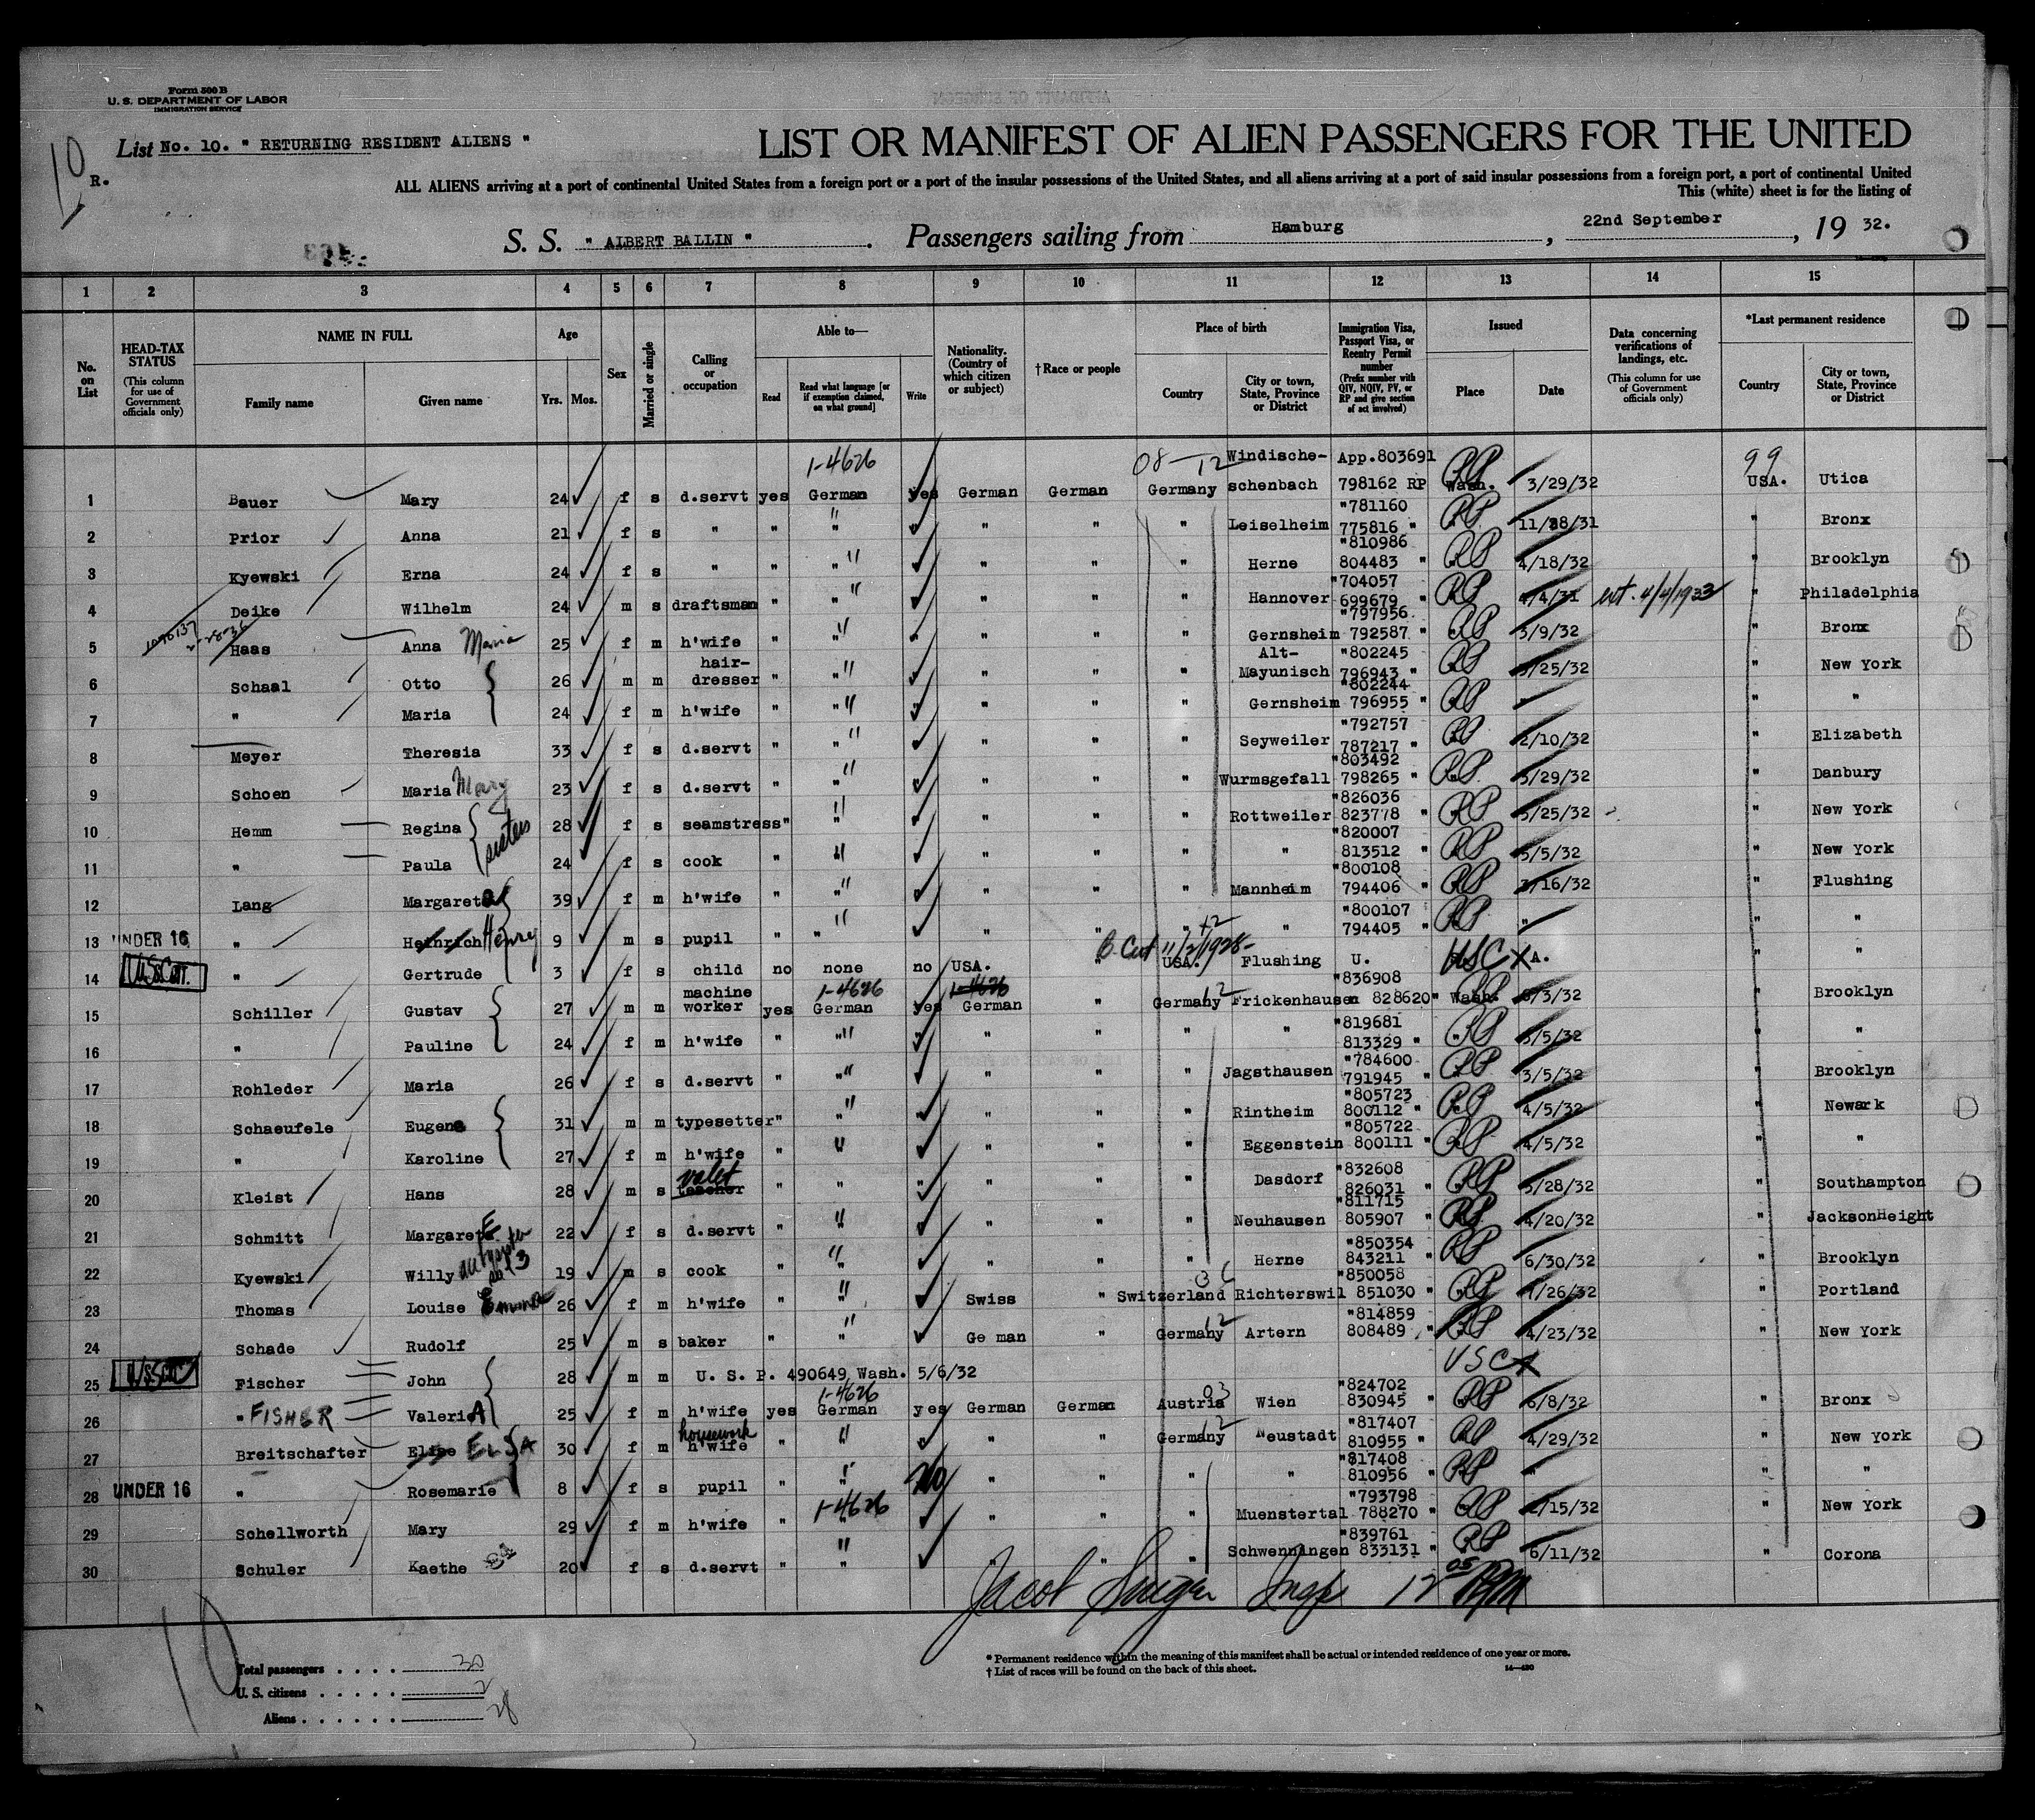 Form 500 B
U. S. DEPARTMENT OF LABOR
IMMIGRATION SERVICE
10
R.
List No. 10. " RETURNING RESIDENT ALIENS "
LIST OR MANIFEST OF ALIEN PASSENGERS FOR THE UNITED
ALL ALIENS arriving at a port of continental United States from a foreign port or a port of the insular possessions of the United States, and all aliens arriving at a port of said insular possessions from a foreign port, a port of continental United
This (white) sheet is for the listing of
S. S. " ALBERT BALLIN " . Passengers sailing from Hamburg , 22nd September , 19 32.
1 2 3 4 5 6 7 8 9 10 11 12 13 14 15
No. on List
HEAD-TAX STATUS (This column for use of Government officials only)
NAME IN FULL Family name Given name
Age Yrs. Mos.
Sex
Married or single
Calling or occupation
Able to— Read Read what language [or if exemption claimed, on what ground] Write
Nationality. (Country of which citizen or subject)
† Race or people
Place of birth Country City or town, State, Province or District
Immigration Visa, Passport Visa, or Reentry Permit number (Prefix number with QIV, NQIV, PV, or RP and give section of act involved)
Issued Place Date
Data concerning verifications of landings, etc. (This column for use of Government officials only)
*Last permanent residence Country City or town, State, Province or District
1-4626 08 12 Windische- App.803691 RP 99
1 Bauer Mary 24 f s d.servt yes German yes German German Germany schenbach 798162 RP Wash. 3/29/32 USA. Utica
"781160
2 Prior Anna 21 f s " " " " " " Leiselheim 775816 " RP 11/28/31 " Bronx
"810986
3 Kyewski Erna 24 f s " " " " " " Herne 804483 " RP 4/18/32 " Brooklyn
"704057
4 Deike Wilhelm 24 m s draftsman " " " " " Hannover 699679 " RP 4/4/31 ext. 4/4/1933 " Philadelphia
"797956
5 Haas Anna Maria 25 f m h'wife " " " " " Gernsheim 792587 " RP 3/9/32 " Bronx
hair- Alt- "802245
6 Schaal Otto 26 m m dresser " " " " " Mayunisch 796943 " RP 3/25/32 " New York
"802244
7 " Maria 24 f m h'wife " " " " " Gernsheim 796955 " RP " " "
"792757
8 Meyer Theresia 33 f s d.servt " " " " " Seyweiler 787217 " RP 2/10/32 " Elizabeth
"803492
9 Schoen Maria Mary 23 f s d.servt " " " " " Wurmsgefall 798265 " RP 3/29/32 " Danbury
"826036
10 Hemm Regina sisters 28 f s seamstress " " " " " Rottweiler 823778 " RP 5/25/32 " New York
"820007
11 " Paula 24 f s cook " " " " " " 813512 " RP 5/5/32 " New York
"800108
12 Lang Margareta 39 f m h'wife " " " " " Mannheim 794406 " RP 3/16/32 " Flushing
"800107
13 UNDER 16 " Heinrich Henry 9 m s pupil " " " " " " 794405 " RP " " "
B. Cert 11/2/1928-
14 " Gertrude 3 f s child no none no USA. " USA. Flushing U. USC X A. " "
machine 1-4626 1-4626 12 "836908
15 Schiller Gustav 27 m m worker yes German yes German " Germany Frickenhausen 828620" Wash. RP 6/3/32 " Brooklyn
"819681
16 " Pauline 24 f m h'wife " " " " " " 813329 " RP 5/5/32 " "
"784600
17 Rohleder Maria 26 f s d.servt " " " " " Jagsthausen 791945 " RP 3/5/32 " Brooklyn
"805723
18 Schaeufele Eugene 31 m m typesetter " " " " " Rintheim 800112 " RP 4/5/32 " Newark
"805722
19 " Karoline 27 f m h'wife " " " " " Eggenstein 800111 " RP 4/5/32 " "
valet "832608
20 Kleist Hans 28 m s teacher " " " " " " Dasdorf 826031 " RP 5/28/32 " Southampton
"811715
21 Schmitt Margarete 22 f s d.servt " " " " " Neuhausen 805907 " RP 4/20/32 " JacksonHeight
"850354
22 Kyewski Willy 19 m s cook " " " " " Herne 843211 " RP 6/30/32 " Brooklyn
"850058
23 Thomas Louise Emma 26 f m h'wife " " Swiss " Switzerland Richterswil 851030 " RP 7/26/32 " Portland
12 "814859
24 Schade Rudolf 25 m s baker " " Ge man " Germany Artern 808489 " RP 4/23/32 " New York
25 Fischer John 28 m m U. S. P. 490649, Wash. 5/6/32 USC X
1-4626 03 "824702
26 " FISHER ValeriA 25 f m h'wife yes German yes German German Austria Wien 830945 " RP 6/8/32 " Bronx
housework 12 "817407
27 Breitschafter Elise ELSA 30 f m h'wife " " " " Germany Neustadt 810955 " RP 4/29/32 " New York
"817408
28 UNDER 16 " Rosemarie 8 f s pupil " " No " " " " 810956 " RP " " "
1-4626 "793798
29 Schellworth Mary 29 f m h'wife " " " " " Muenstertal 788270 " RP 2/15/32 " New York
"839761
30 Schuler Kaethe 20 f s d.servt " " " " " Schwenningen 833131 " RP 6/11/32 " Corona
Jacob Insp 12 05 PM
10
Total passengers . . . . 30
U. S. citizens . . . . . 2
Aliens . . . . . . 28
* Permanent residence within the meaning of this manifest shall be actual or intended residence of one year or more.
† List of races will be found on the back of this sheet.
14—420